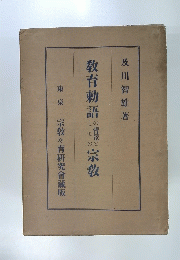 及川智雄著
教育勅語
宗教
東京 宗教々育研究會蔵版